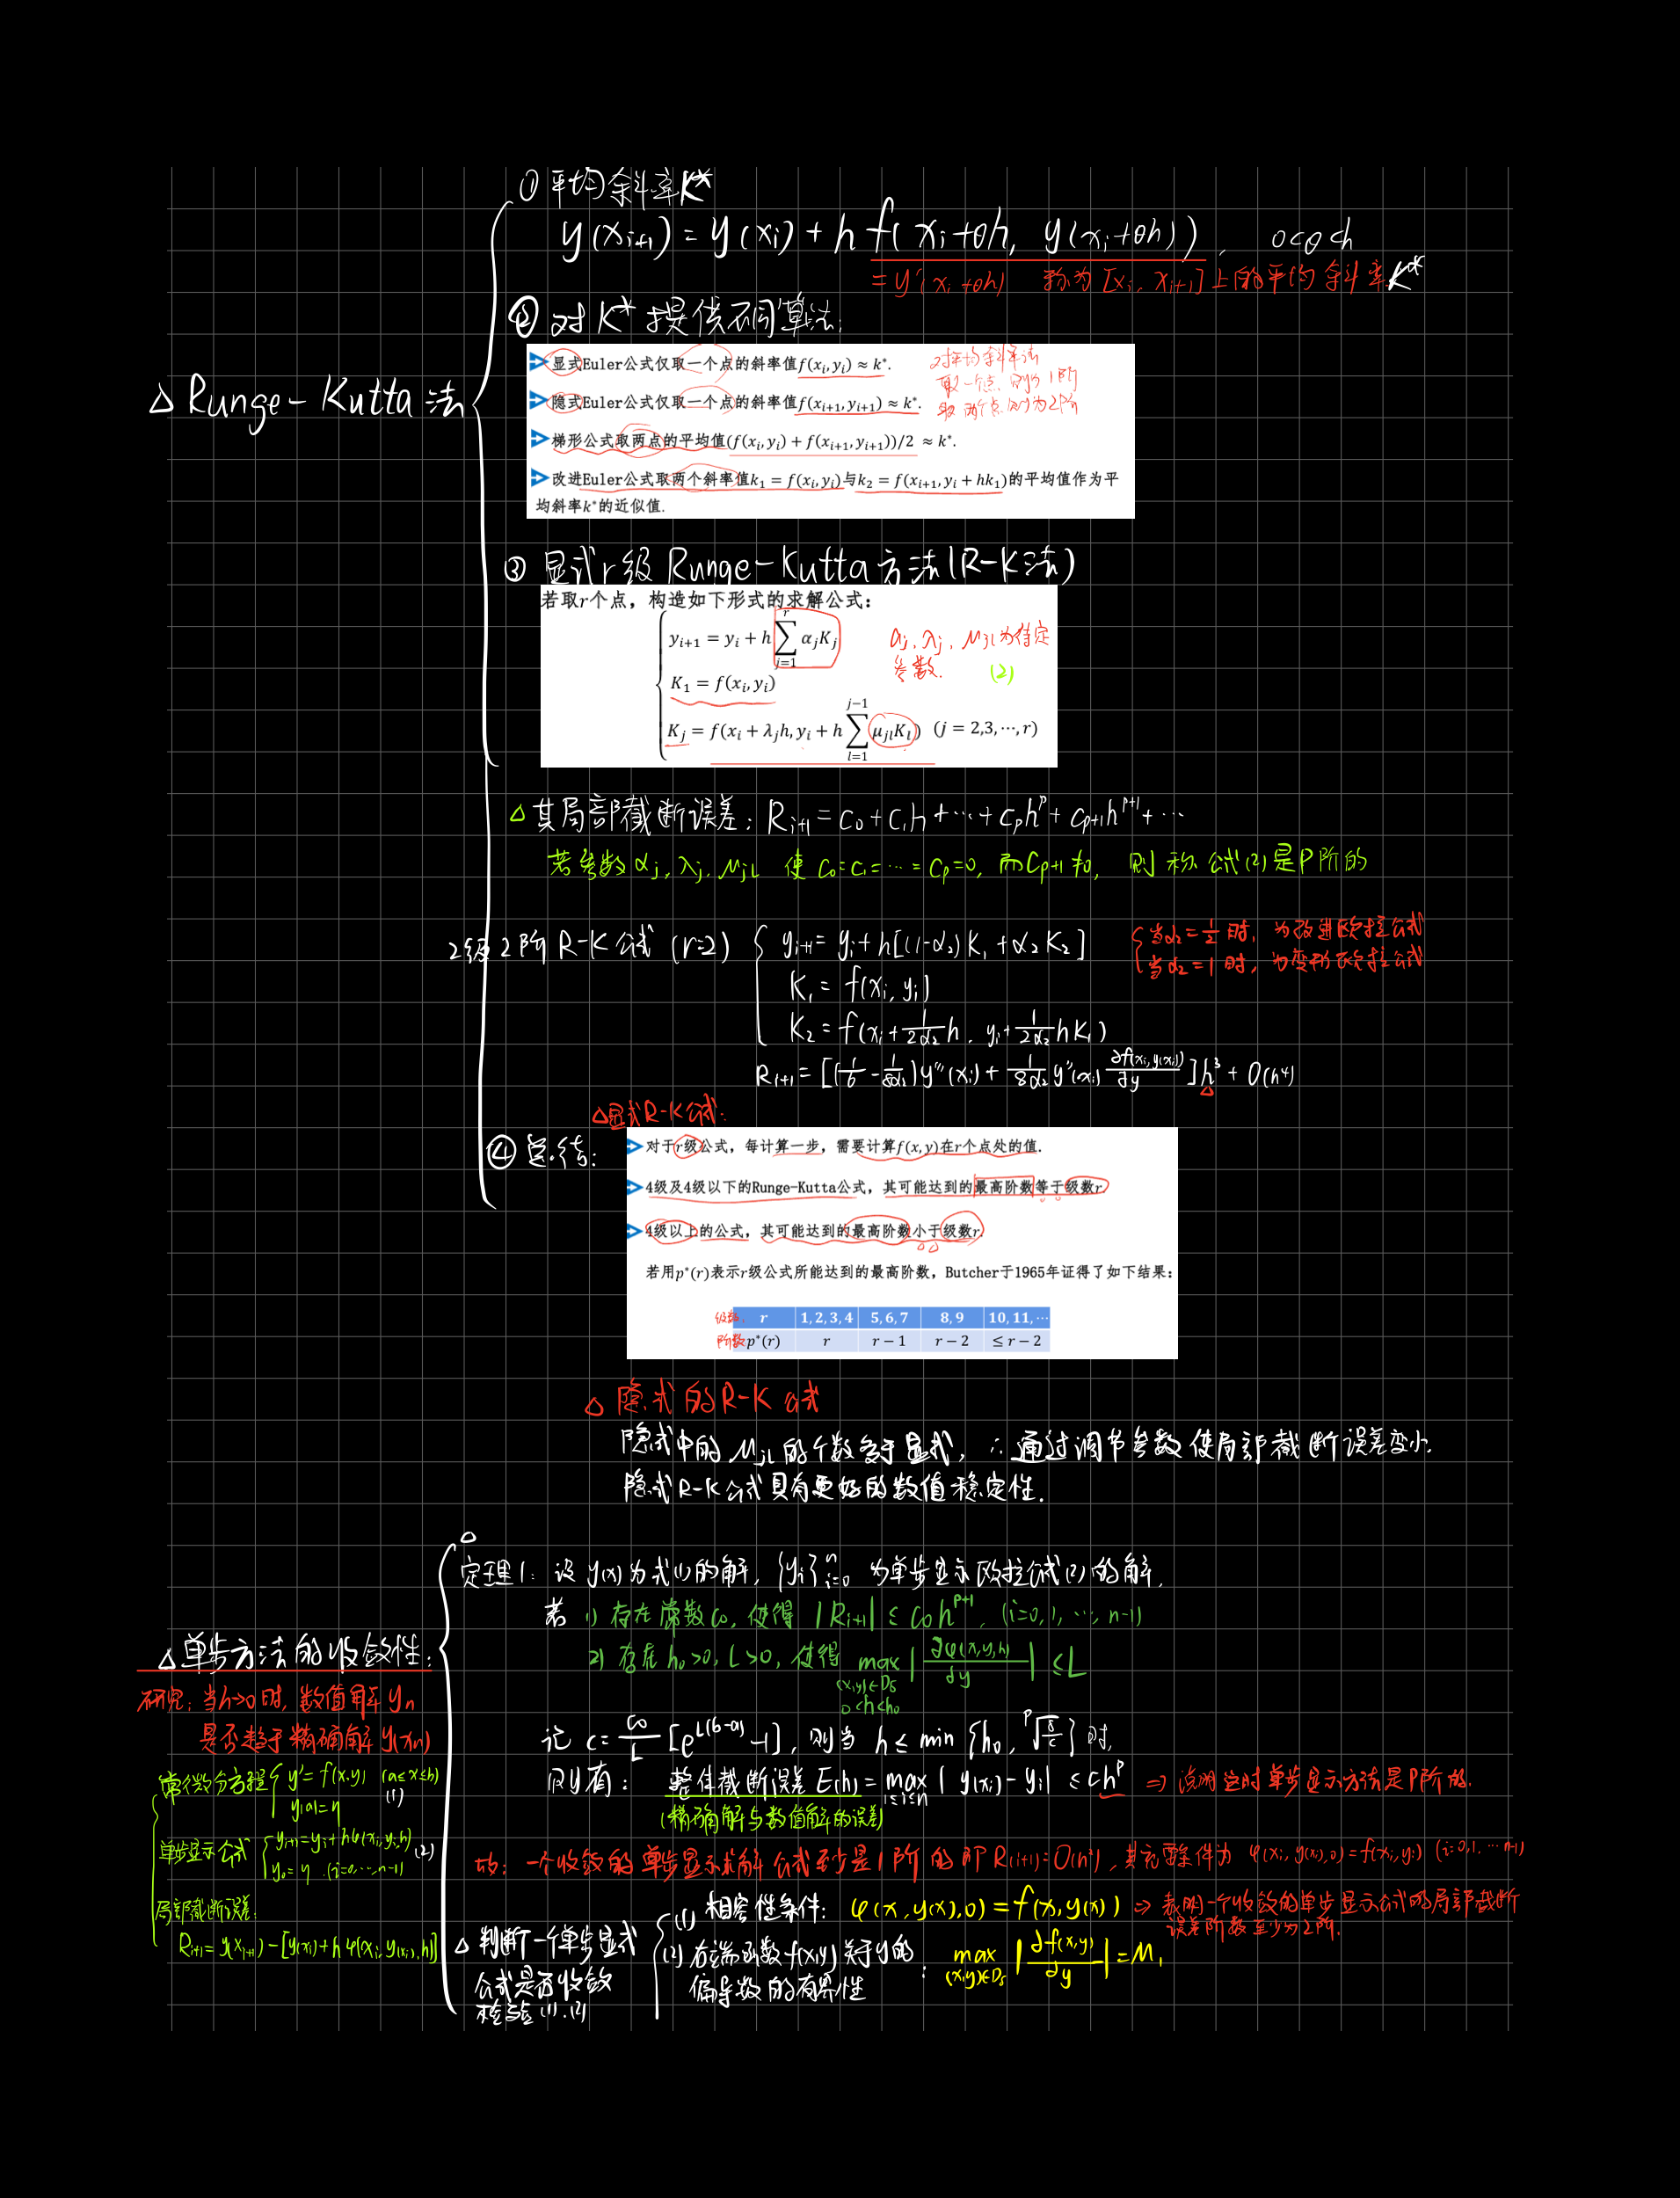 △ Runge-Kutta 法
① 平均斜率K*
y(x_{i+1}) = y(x_i) + h f(x_i+θh, y(x_i+θh)), 0<θ<h
= y'(x_i+θh) 称为[x_i, x_{i+1}]上的平均斜率K*
② 对K*提供不同算法:
显式Euler公式仅取一个点的斜率值f(x_i, y_i) ≈ k*.
隐式Euler公式仅取一个点的斜率值f(x_{i+1}, y_{i+1}) ≈ k*.
梯形公式取两点的平均值(f(x_i, y_i) + f(x_{i+1}, y_{i+1}))/2 ≈ k*.
改进Euler公式取两个斜率值k_1 = f(x_i, y_i)与k_2 = f(x_{i+1}, y_i + hk_1)的平均值作为平
均斜率k*的近似值.
对平均斜率法
取一个点, 则为1阶
取两个点, 则为2阶
③ 显式r级 Runge-Kutta方法(R-K法)
若取r个点，构造如下形式的求解公式：
y_{i+1} = y_i + h ∑_{j=1}^{r} α_j K_j
K_1 = f(x_i, y_i)
K_j = f(x_i + λ_j h, y_i + h ∑_{l=1}^{j-1} μ_{jl} K_l) (j = 2,3,⋯,r)
α_j, λ_j, μ_{jl}为待定
参数. (2)
△ 其局部截断误差: R_{i+1} = c_0 + c_1h + ⋯ + c_p h^p + c_{p+1} h^{p+1} + ⋯
若参数 α_j, λ_j, μ_{jl} 使 c_0=c_1=⋯=c_p=0, 而c_{p+1}≠0, 则称公式(2)是P阶的
2级2阶 R-K公式 (r=2)
y_{i+1} = y_i + h[(1-α_2)K_1 + α_2K_2]
K_1 = f(x_i, y_i)
K_2 = f(x_i + \frac{1}{2α_2}h, y_i + \frac{1}{2α_2}hK_1)
R_{i+1} = [(\frac{1}{6} - \frac{1}{8α_2})y'''(x_i) + \frac{1}{8α_2}y''(x_i)\frac{∂f(x_i,y(x_i))}{∂y}]h^3 + O(h^4)
当α_2=\frac{1}{2}时, 为改进欧拉公式
当α_2=1时, 为变形欧拉公式
④ 总结:
△显式R-K公式:
对于r级公式，每计算一步，需要计算f(x, y)在r个点处的值.
4级及4级以下的Runge-Kutta公式，其可能达到的最高阶数等于级数r.
4级以上的公式，其可能达到的最高阶数小于级数r.
若用p*(r)表示r级公式所能达到的最高阶数，Butcher于1965年证得了如下结果：
级数 r 1, 2, 3, 4 5, 6, 7 8, 9 10, 11, ⋯
阶数 p*(r) r r − 1 r − 2 ≤ r − 2
△ 隐式的R-K公式
隐式中的μ_{jl}的个数多于显式, ∴通过调节参数使局部截断误差变小.
隐式R-K公式具有更好的数值稳定性.
△单步方法的收敛性:
研究: 当h→0时, 数值解y_n
是否趋于精确解y(x_n)
常微分方程 y' = f(x,y) (a≤x≤b)
y(a)=η (1)
单步显示公式 y_{i+1}=y_i+hφ(x_i,y_i,h) (2)
y_0=η (i=0,⋯,n-1)
局部截断误差:
R_{i+1} = y(x_{i+1}) - [y(x_i)+hφ(x_i,y(x_i),h)]
定理1: 设 y(x)为式(1)的解, {y_i}_{i=0}^n 为单步显示欧拉公式(2)的解,
若 1) 存在常数c_0, 使得 |R_{i+1}| ≤ c_0h^{p+1}, (i=0,1,⋯,n-1)
2) 存在h_0>0, L>0, 使得 max_{(x,y)∈D_δ, 0<h<h_0} |\frac{∂φ(x,y,h)}{∂y}| ≤ L
记 c = \frac{c_0}{L}[e^{L(b-a)}-1], 则当 h ≤ min{h_0, \sqrt[p]{\frac{δ}{c}}}时,
则有: 整体截断误差 E(h) = max_{1≤i≤n} |y(x_i)-y_i| ≤ ch^p ⇒ 说明这时单步显示方法是P阶的.
(精确解与数值解的误差)
故: 一个收敛的单步显示求解公式至少是1阶的 即R_{(i+1)}=O(h²), 其充要条件为 φ(x_i, y(x_i),0)=f(x_i,y_i) (i=0,1,⋯n-1)
△ 判断一个单步显式
公式是否收敛
检验(1).(2)
(1) 相容性条件: φ(x,y(x),0)=f(x,y(x)) ⇒ 表明一个收敛的单步显示公式的局部截断
误差阶数至少为2阶.
(2) 右端函数f(x,y)关于y的
偏导数的有界性 : max_{(x,y)∈D_δ} |\frac{∂f(x,y)}{∂y}| = M_1